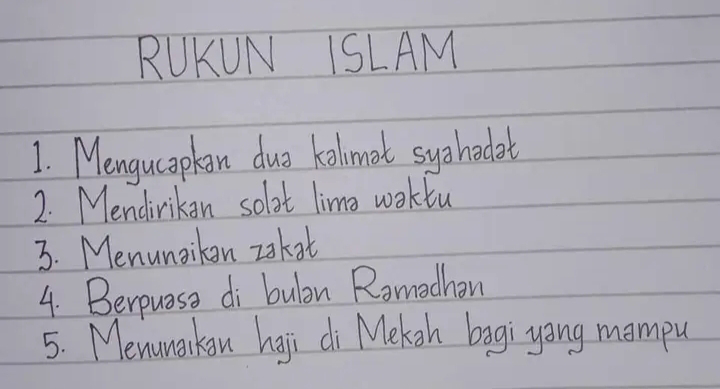 RUKUN ISLAM
1. Mengucapkan dua kalimat syahadat
2. Mendirikan solat lima waktu
3. Menunaikan zakat
4. Berpuasa di bulan Ramadhan
5. Menunaikan haji di Mekah bagi yang mampu